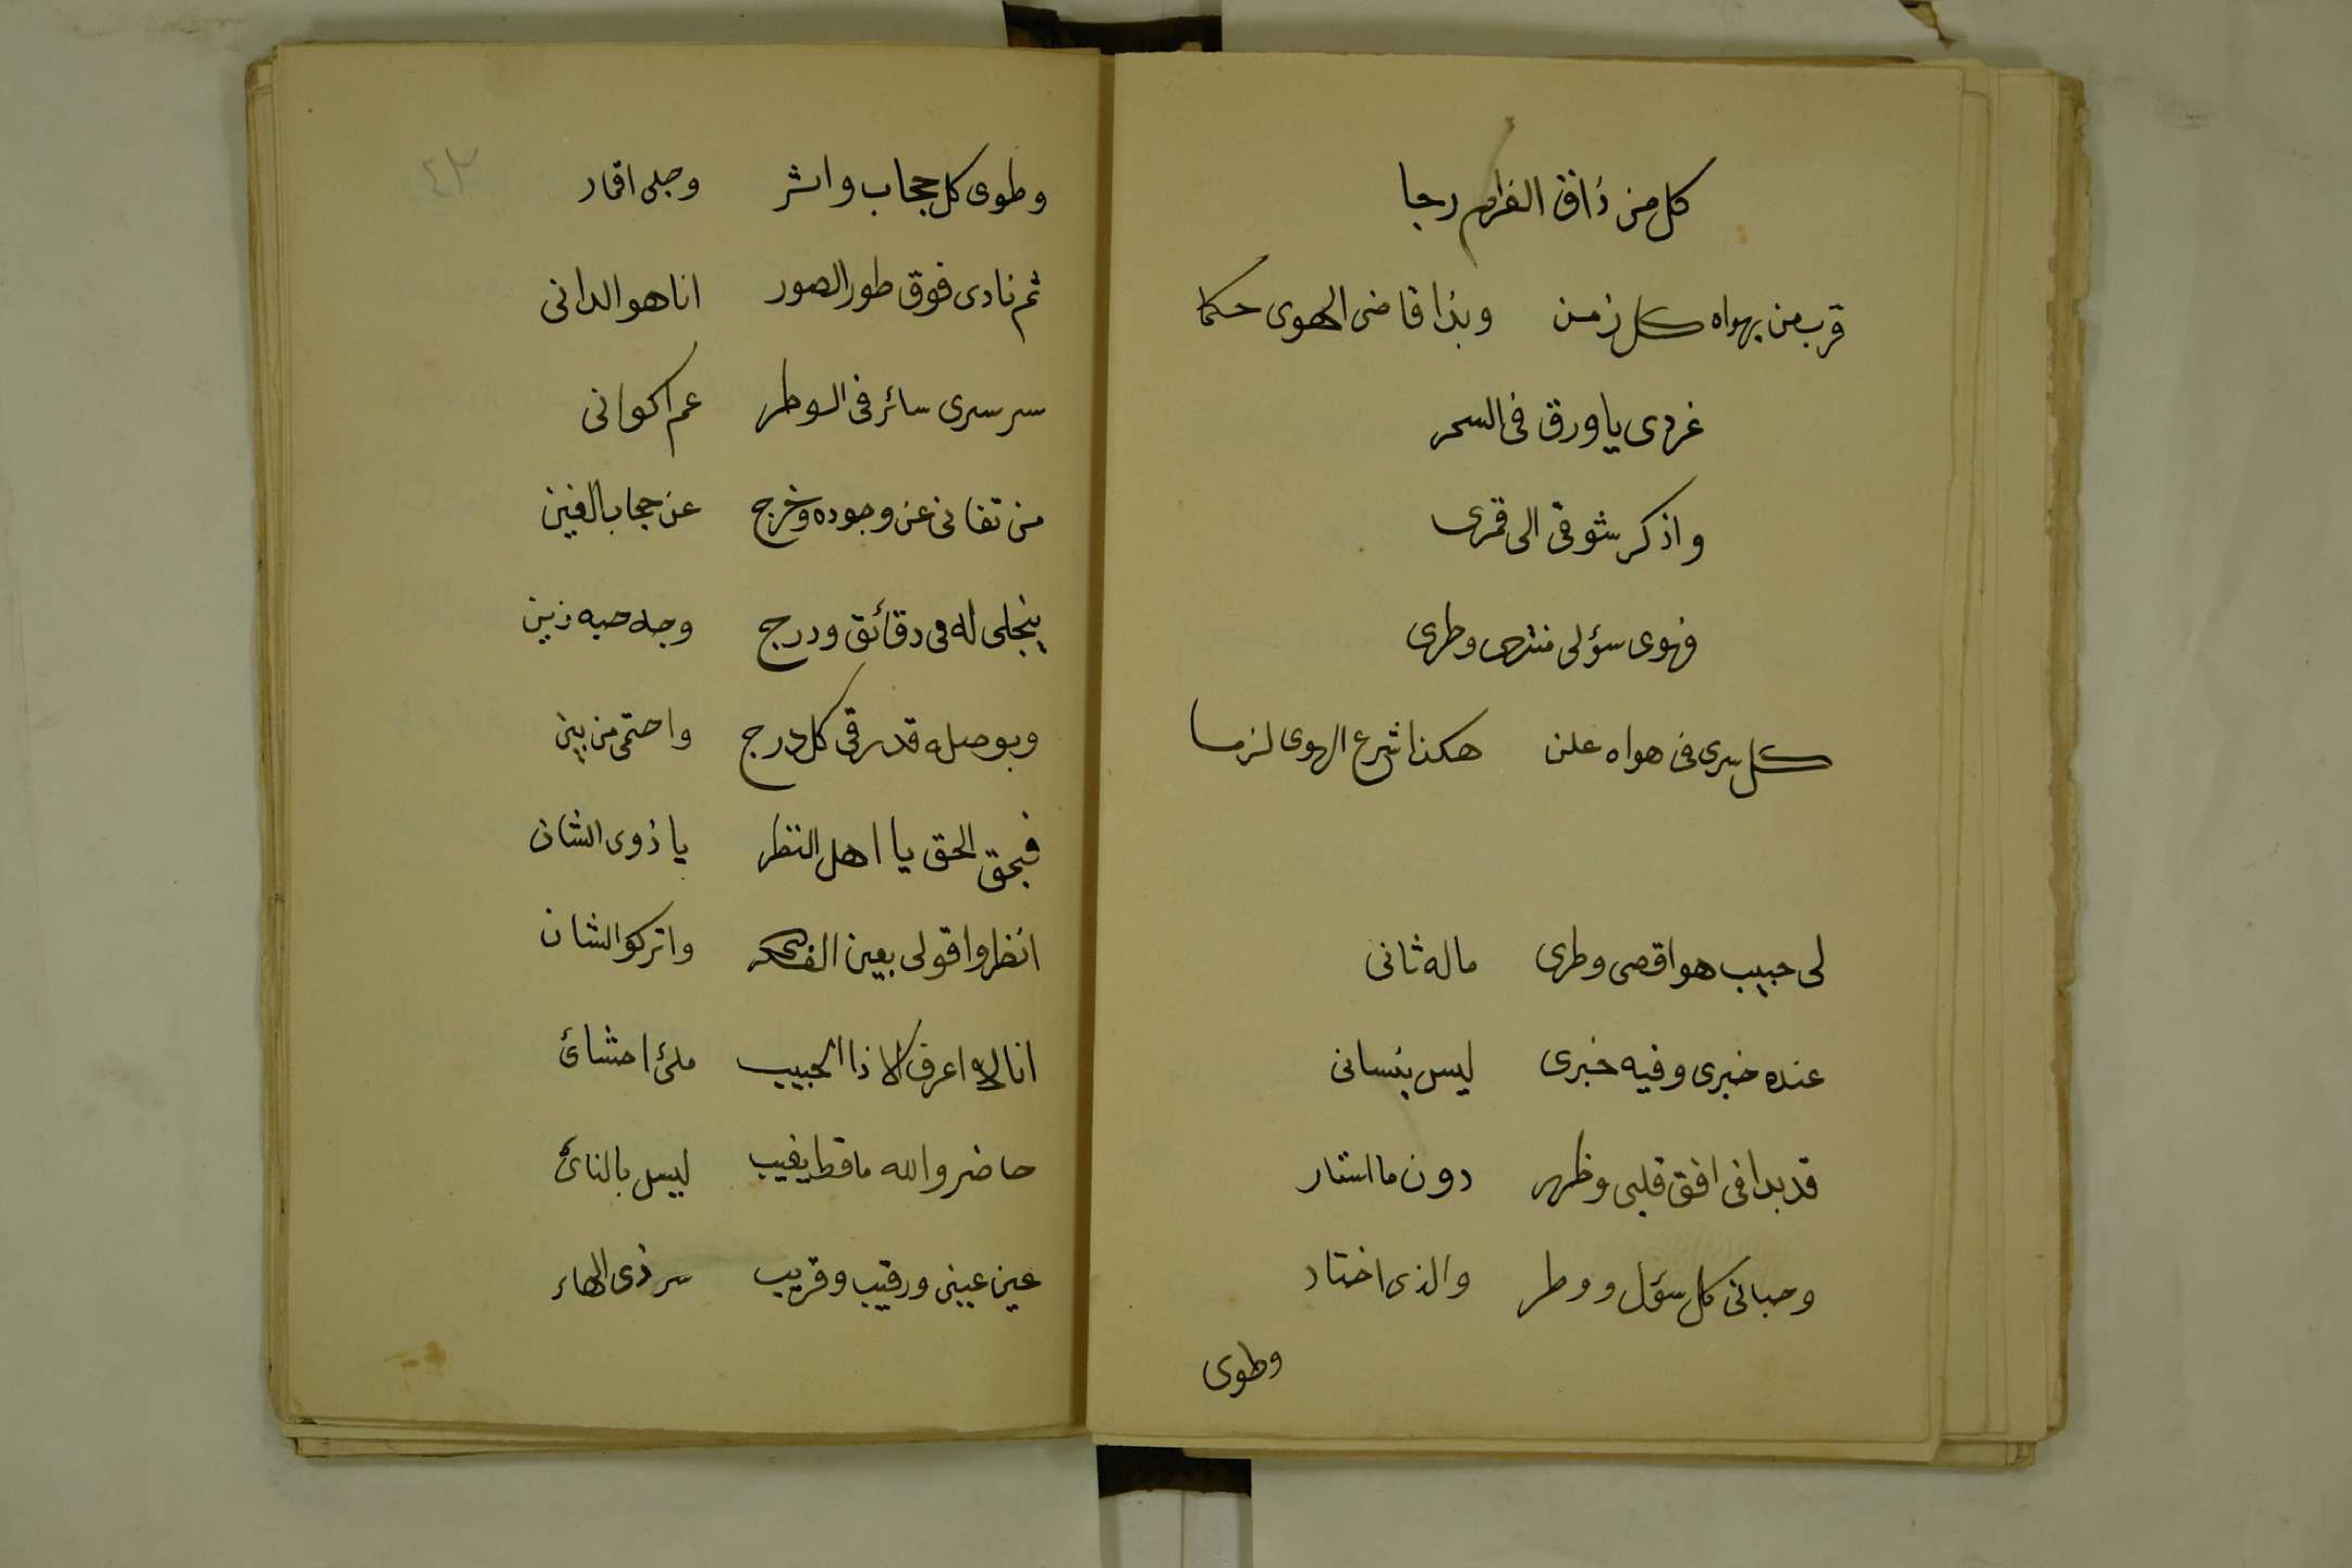 كل من ذاق الغرام رجا
قرب من يهواه كل زمن وبذا قاضى الهوى حكما
غردى يا ورق فى السحر
واذكر شوقى الى قمرى
فهوى سؤلى منتهى وطرى
كل سرى فى هواه علن هكذا شرع الهوى لزما
لى حبيب هو اقصى وطرى ماله ثانى
عنده خبرى وفيه خبرى ليس ينسانى
قد بدا فى افق قلبى وظهر دون ما استار
وحبانى كل سؤل ووطر والذى اختار
وطوى
٤٢
وطوى كل حجاب وانشر وجلى اقمار
ثم نادى فوق طور الصور انا هو الدانى
سر سرى سائر فى الوطر عم اكوانى
من تفانى عن وجوده وخرج عن حجاب الغين
ينجلى له فى دقائق ودرج وجه حبه زين
وبوصله قد رقى كل درج واحتمى من بين
فبحق الحق يا اهل النظر يا ذوى الشان
انظروا قولى بعين الفكر واتركوا الشان
انا لا اعرف الا ذا الحبيب ملئ احشائ
حاضر والله ما قط يغيب ليس بالنائ
عين عينى ورقيب وقريب سر ذى الهاء